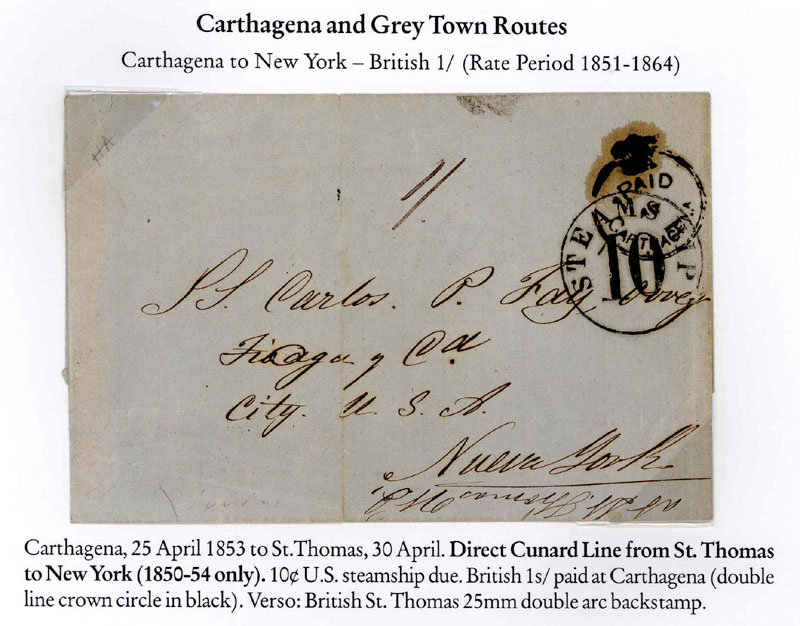 Carthagena and Grey Town Routes
Carthagena to New York – British 1/ (Rate Period 1851-1864)
HA
1/
PAID
AT
CARTHAG
STEAMSHIP
10
SS Carlos. P. Fay
y Cia
City. U. S. A.
Nueva York
Carthagena, 25 April 1853 to St.Thomas, 30 April. Direct Cunard Line from St. Thomas
to New York (1850-54 only). 10¢ U.S. steamship due. British 1s/ paid at Carthagena (double
line crown circle in black). Verso: British St. Thomas 25mm double arc backstamp.